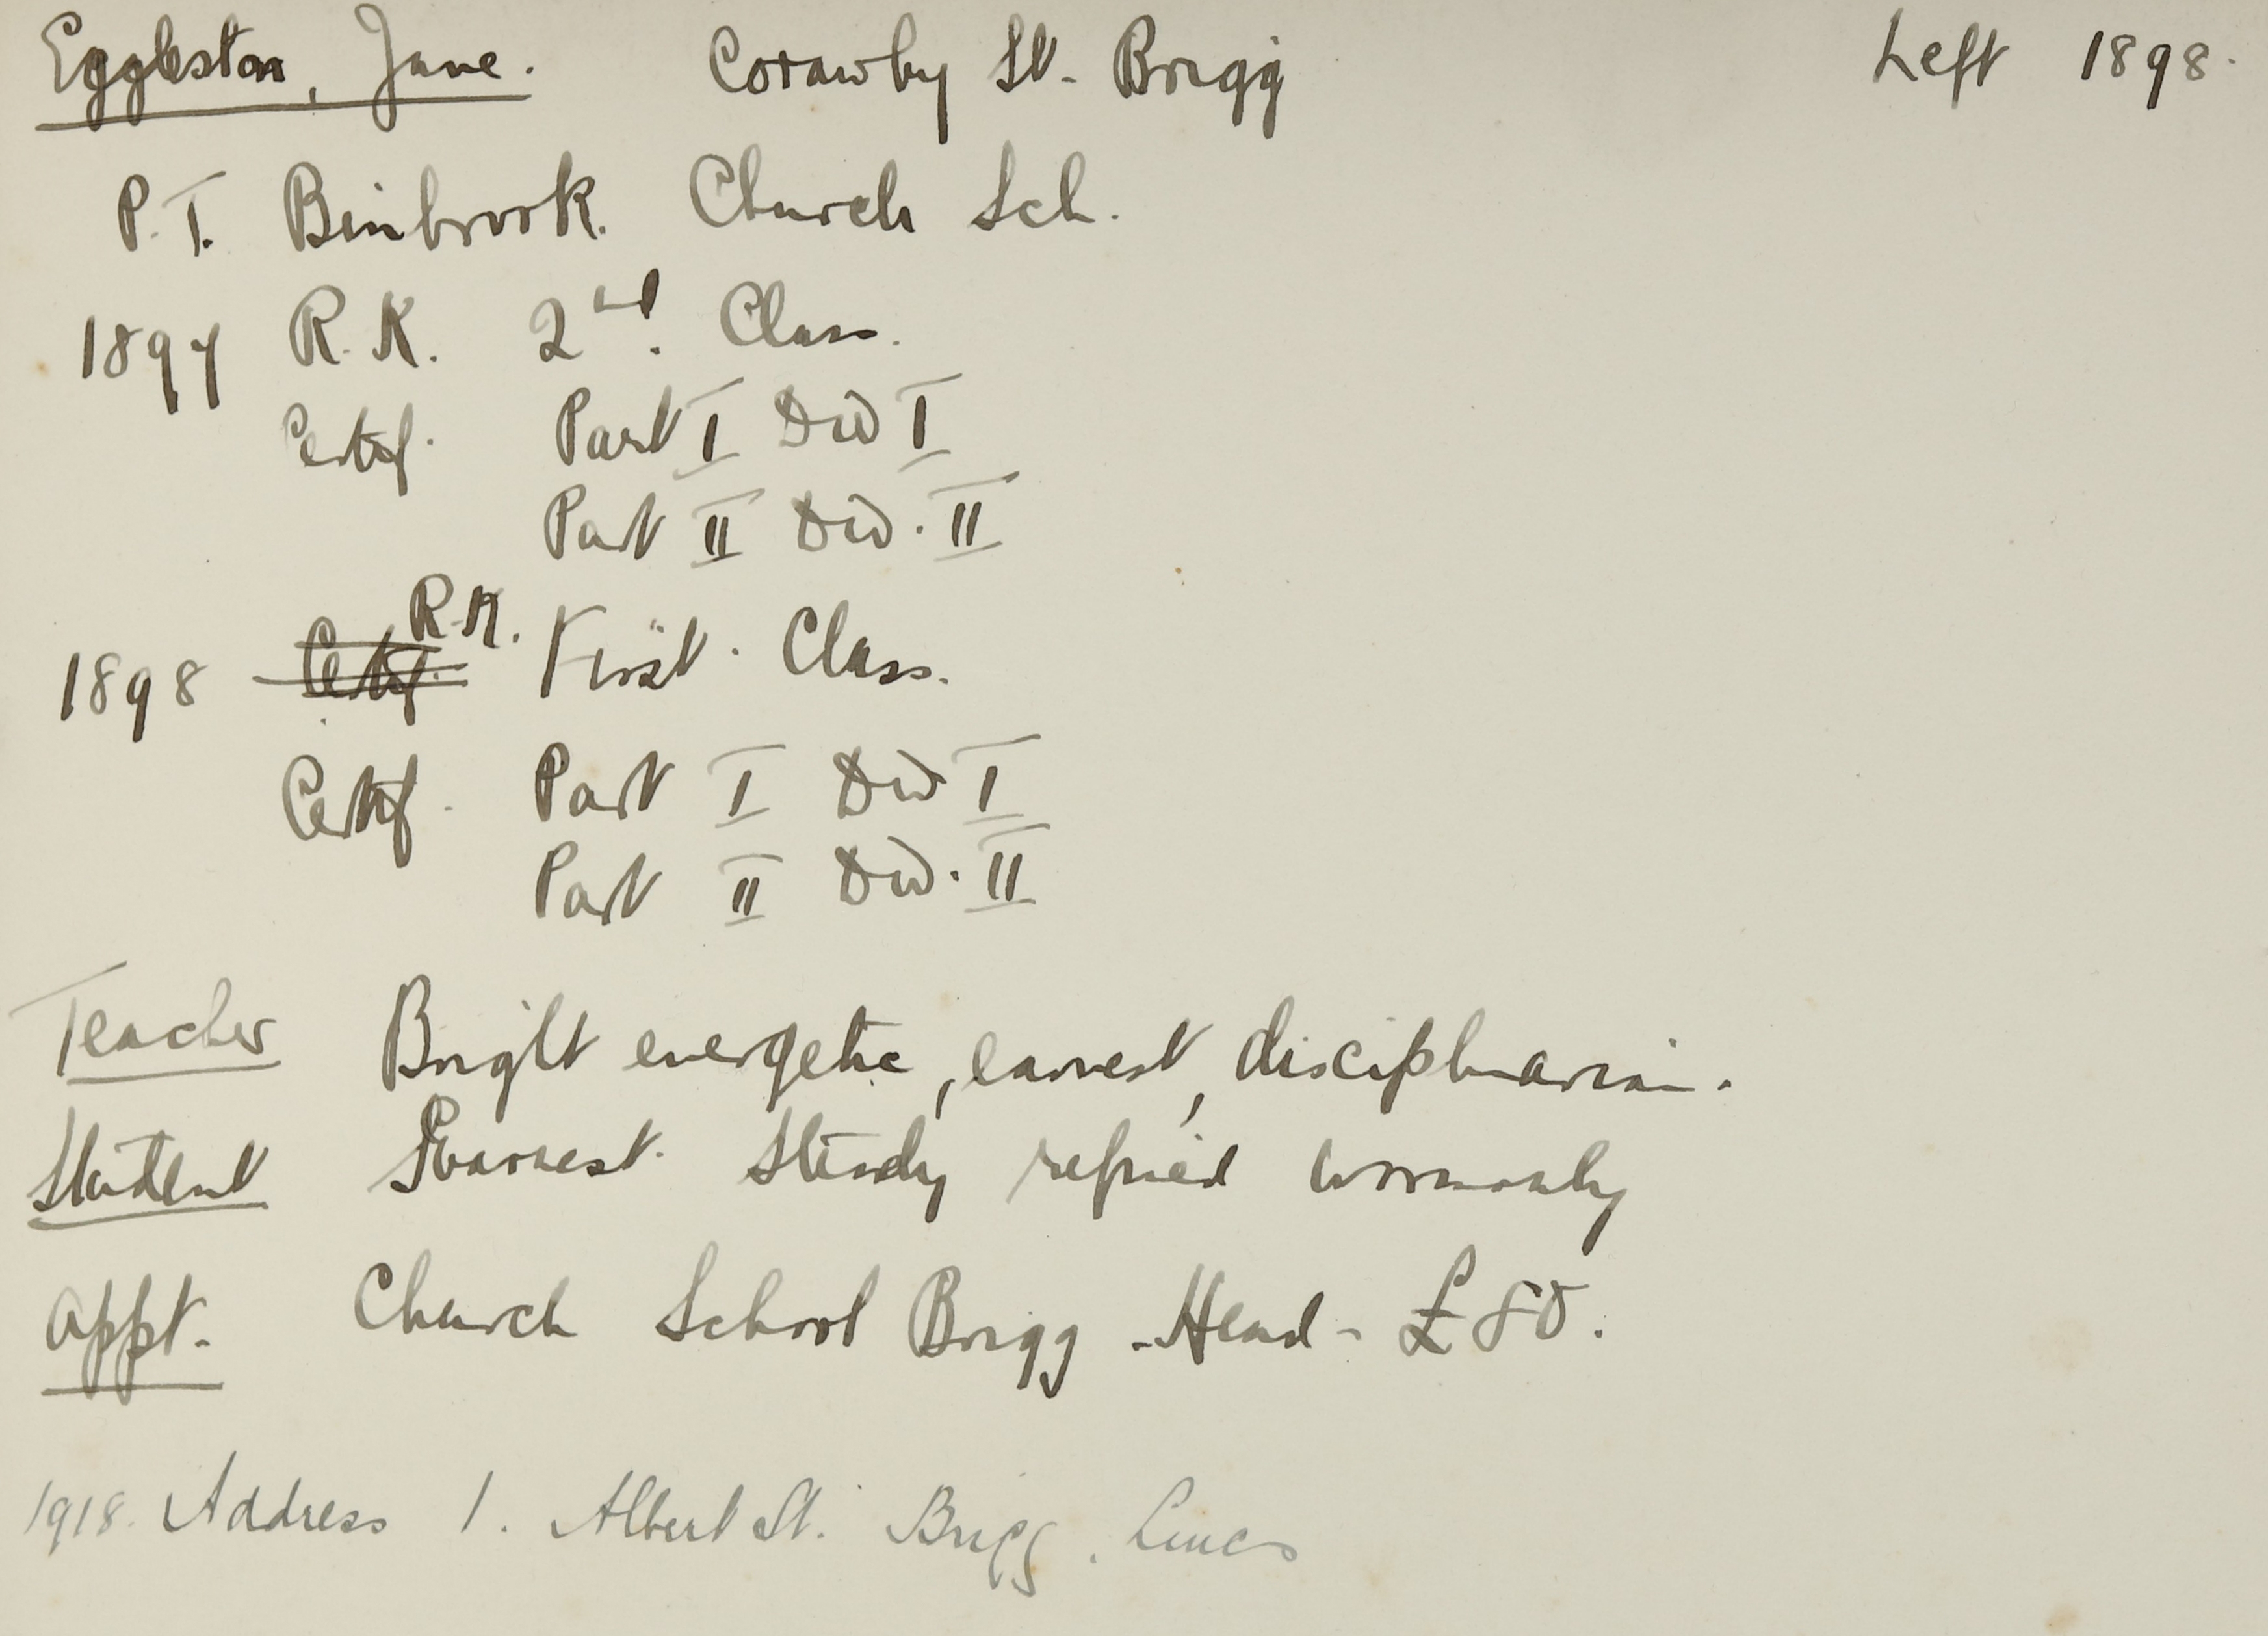 Eggleston, Jane. Corawby St. Brigg Left 1898.
P.T. Binbrook. Church Sch.
1897 R.K. 2nd. Class.
Certif. Part I Div I
Part II Div. II
R.K.
1898 Certif. First. Class.
Certif. Part I Div I
Part II Div. II
Teacher Bright energetic, earnest, disciplinarian.
Student Earnest. Steady refined womanly
Appt. Church School Brigg - Head - £80.
1918. Address 1. Albert St. Brigg. Lincs